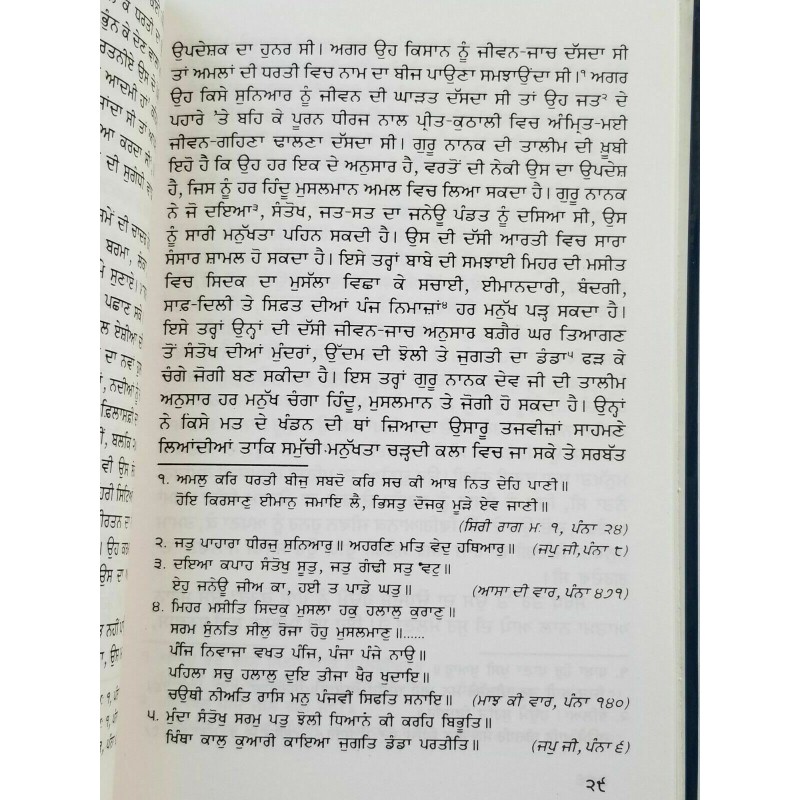 ਉਪਦੇਸ਼ਕ ਦਾ ਹੁਨਰ ਸੀ। ਅਗਰ ਉਹ ਕਿਸਾਨ ਨੂੰ ਜੀਵਨ-ਜਾਚ ਦੱਸਦਾ ਸੀ
ਤਾਂ ਅਮਲਾਂ ਦੀ ਧਰਤੀ ਵਿਚ ਨਾਮ ਦਾ ਬੀਜ ਪਾਉਣਾ ਸਮਝਾਉਂਦਾ ਸੀ।੧ ਅਗਰ
ਉਹ ਕਿਸੇ ਸੁਨਿਆਰ ਨੂੰ ਜੀਵਨ ਦੀ ਘਾੜਤ ਦੱਸਦਾ ਸੀ ਤਾਂ ਉਹ ਜਤ੨ ਦੇ
ਪਹਾਰੇ 'ਤੇ ਬਹਿ ਕੇ ਪੂਰਨ ਧੀਰਜ ਨਾਲ ਪ੍ਰੀਤ-ਕੁਠਾਲੀ ਵਿਚ ਅੰਮ੍ਰਿਤ-ਮਈ
ਜੀਵਨ-ਗਹਿਣਾ ਢਾਲਣਾ ਦੱਸਦਾ ਸੀ। ਗੁਰੂ ਨਾਨਕ ਦੀ ਤਾਲੀਮ ਦੀ ਖ਼ੂਬੀ
ਇਹੋ ਹੈ ਕਿ ਉਹ ਹਰ ਇਕ ਦੇ ਅਨੁਸਾਰ ਹੈ, ਵਰਤੋਂ ਦੀ ਨੇਕੀ ਉਸ ਦਾ ਉਪਦੇਸ਼
ਹੈ, ਜਿਸ ਨੂੰ ਹਰ ਹਿੰਦੂ ਮੁਸਲਮਾਨ ਅਮਲ ਵਿਚ ਲਿਆ ਸਕਦਾ ਹੈ। ਗੁਰੂ ਨਾਨਕ
ਨੇ ਜੋ ਦਇਆ੩, ਸੰਤੋਖ, ਜਤ-ਸਤ ਦਾ ਜਨੇਊ ਪੰਡਤ ਨੂੰ ਦਸਿਆ ਸੀ, ਉਸ
ਨੂੰ ਸਾਰੀ ਮਨੁੱਖਤਾ ਪਹਿਨ ਸਕਦੀ ਹੈ। ਉਸ ਦੀ ਦੱਸੀ ਆਰਤੀ ਵਿਚ ਸਾਰਾ
ਸੰਸਾਰ ਸ਼ਾਮਲ ਹੋ ਸਕਦਾ ਹੈ। ਇਸੇ ਤਰ੍ਹਾਂ ਬਾਬੇ ਦੀ ਸਮਝਾਈ ਮਿਹਰ ਦੀ ਮਸੀਤ
ਵਿਚ ਸਿਦਕ ਦਾ ਮੁਸੱਲਾ ਵਿਛਾ ਕੇ ਸਚਾਈ, ਈਮਾਨਦਾਰੀ, ਬੰਦਗੀ,
ਸਾਫ਼-ਦਿਲੀ ਤੇ ਸਿਫ਼ਤ ਦੀਆਂ ਪੰਜ ਨਿਮਾਜ਼ਾਂ੪ ਹਰ ਮਨੁੱਖ ਪੜ੍ਹ ਸਕਦਾ ਹੈ।
ਇਸੇ ਤਰ੍ਹਾਂ ਉਨ੍ਹਾਂ ਦੀ ਦੱਸੀ ਜੀਵਨ-ਜਾਚ ਅਨੁਸਾਰ ਬਗ਼ੈਰ ਘਰ ਤਿਆਗਣ
ਤੋਂ ਸੰਤੋਖ ਦੀਆਂ ਮੁੰਦਰਾਂ, ਉੱਦਮ ਦੀ ਝੋਲੀ ਤੇ ਜੁਗਤੀ ਦਾ ਡੰਡਾ੫ ਫੜ ਕੇ
ਚੰਗੇ ਜੋਗੀ ਬਣ ਸਕੀਦਾ ਹੈ। ਇਸ ਤਰ੍ਹਾਂ ਗੁਰੂ ਨਾਨਕ ਦੇਵ ਜੀ ਦੀ ਤਾਲੀਮ
ਅਨੁਸਾਰ ਹਰ ਮਨੁੱਖ ਚੰਗਾ ਹਿੰਦੂ, ਮੁਸਲਮਾਨ ਤੇ ਜੋਗੀ ਹੋ ਸਕਦਾ ਹੈ। ਉਨ੍ਹਾਂ
ਨੇ ਕਿਸੇ ਮਤ ਦੇ ਖੰਡਨ ਦੀ ਥਾਂ ਜ਼ਿਆਦਾ ਉਸਾਰੂ ਤਜਵੀਜ਼ਾਂ ਸਾਹਮਣੇ
ਲਿਆਂਦੀਆਂ ਤਾਕਿ ਸਮੁੱਚੀ ਮਨੁੱਖਤਾ ਚੜ੍ਹਦੀ ਕਲਾ ਵਿਚ ਜਾ ਸਕੇ ਤੇ ਸਰਬੱਤ
੧. ਅਮਲੁ ਕਰਿ ਧਰਤੀ ਬੀਜੁ ਸਬਦੋ ਕਰਿ ਸਚ ਕੀ ਆਬ ਨਿਤ ਦੇਹਿ ਪਾਣੀ॥
ਹੋਇ ਕਿਰਸਾਣੁ ਈਮਾਨੁ ਜਮਾਇ ਲੈ, ਭਿਸਤੁ ਦੋਜਕੁ ਮੂੜੇ ਏਵ ਜਾਣੀ॥
(ਸਿਰੀ ਰਾਗ ਮਃ ੧, ਪੰਨਾ ੨੪)
੨. ਜਤੁ ਪਾਹਾਰਾ ਧੀਰਜੁ ਸੁਨਿਆਰੁ॥ ਅਹਰਣਿ ਮਤਿ ਵੇਦੁ ਹਥਿਆਰੁ॥ (ਜਪੁ ਜੀ,ਪੰਨਾ ੮)
੩. ਦਇਆ ਕਪਾਹ ਸੰਤੋਖੁ ਸੂਤੁ, ਜਤੁ ਗੰਢੀ ਸਤੁ ਵਟੁ॥
ਏਹੁ ਜਨੇਊ ਜੀਅ ਕਾ, ਹਈ ਤ ਪਾਡੇ ਘਤੁ॥ (ਆਸਾ ਦੀ ਵਾਰ, ਪੰਨਾ ੪੭੧)
੪. ਮਿਹਰ ਮਸੀਤਿ ਸਿਦਕੁ ਮੁਸਲਾ ਹਕੁ ਹਲਾਲੁ ਕੁਰਾਣੁ॥
ਸਰਮ ਸੁੰਨਤਿ ਸੀਲੁ ਰੋਜਾ ਹੋਹੁ ਮੁਸਲਮਾਣੁ॥......
ਪੰਜਿ ਨਿਵਾਜਾ ਵਖਤ ਪੰਜਿ, ਪੰਜਾ ਪੰਜੇ ਨਾਉ॥
ਪਹਿਲਾ ਸਚੁ ਹਲਾਲੁ ਦੁਇ ਤੀਜਾ ਖੈਰ ਖੁਦਾਇ॥
ਚਉਥੀ ਨੀਅਤਿ ਰਾਸਿ ਮਨੁ ਪੰਜਵੀਂ ਸਿਫਤਿ ਸਨਾਇ॥ (ਮਾਝ ਕੀ ਵਾਰ, ਪੰਨਾ ੧੪੦)
੫. ਮੁੰਦਾ ਸੰਤੋਖੁ ਸਰਮੁ ਪਤੁ ਝੋਲੀ ਧਿਆਨੰ ਕੀ ਕਰਹਿ ਬਿਭੂਤਿ॥
ਖਿੰਥਾ ਕਾਲੁ ਕੁਆਰੀ ਕਾਇਆ ਜੁਗਤਿ ਡੰਡਾ ਪਰਤੀਤਿ॥ (ਜਪੁ ਜੀ, ਪੰਨਾ ੬)
੨੯